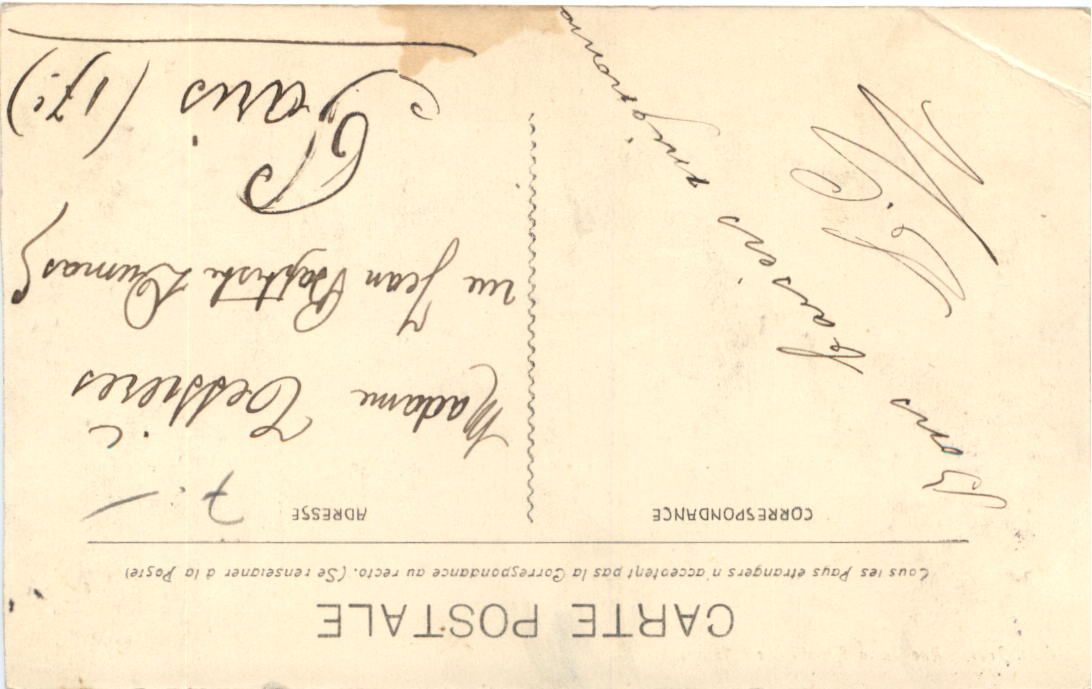 CARTE POSTALE
Tous les Pays étrangers n'acceptent pas la Correspondance au recto. (Se renseigner à la Poste)
CORRESPONDANCE
ADRESSE
Bons
Baisers
mignonne
7.-
Madame Tessieres
rue Jean Baptiste Dumas
Paris (17e)